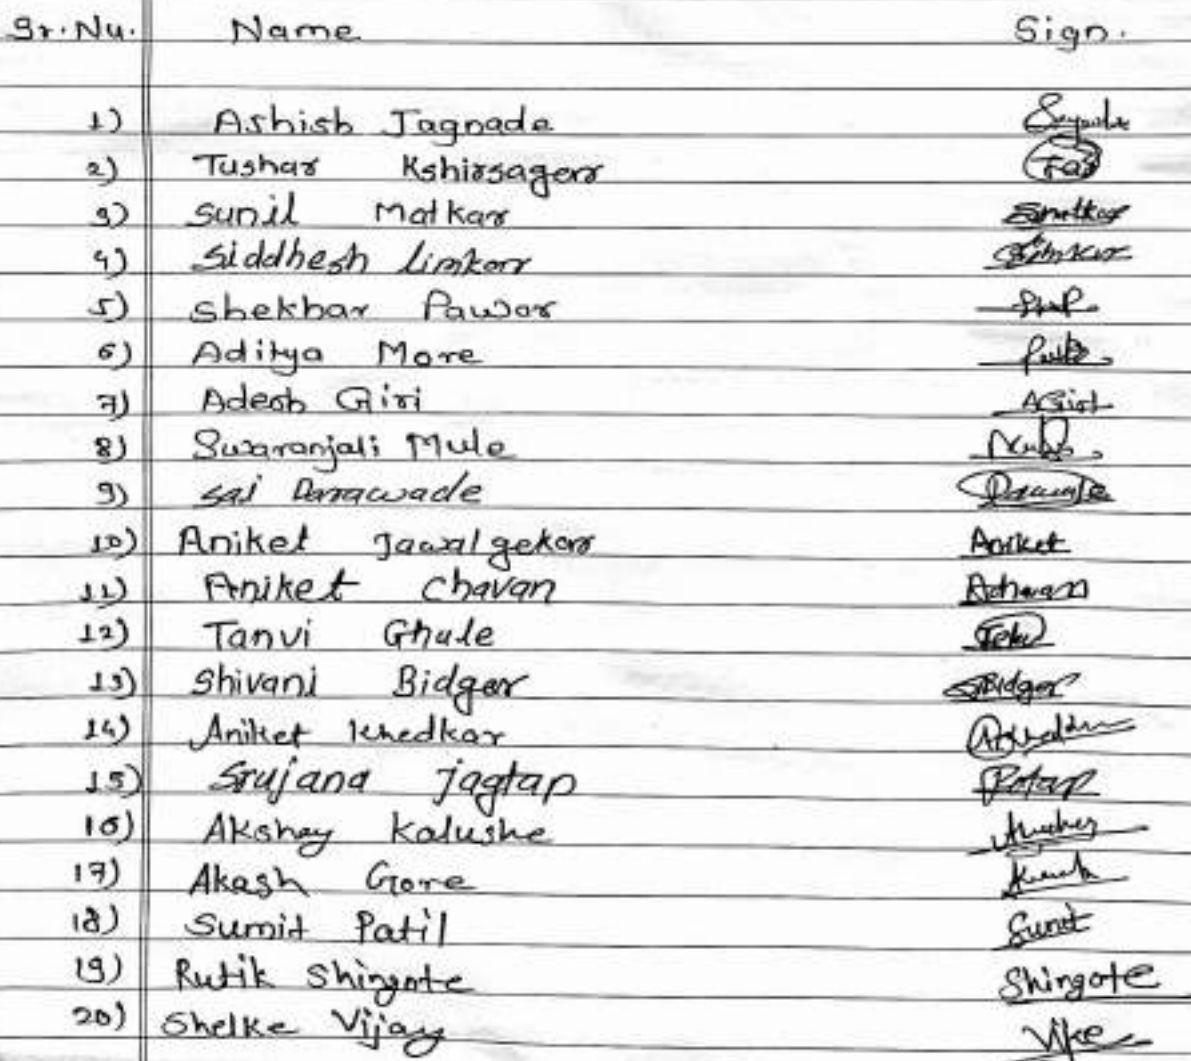 Sr.Nu. Name Sign.
1) Ashish Jagnade
2) Tushar Kshirsagar
3) Sunil Matkar
4) Siddhesh Limkar Limkar
5) Shekhar Pawar
6) Aditya More
7) Adesh Giri AGiri
8) Swaranjali Mule
9) Sai Darawade
10) Aniket Jawalgekar Aniket
11) Aniket Chavan Achavan
12) Tanvi Ghule
13) Shivani Bidgar SBidgar
14) Aniket Khedkar
15) Srujana jagtap
16) Akshay Kalushe
17) Akash Gore
18) Sumit Patil Sumit
19) Rutik Shingote Shingote
20) Shelke Vijay